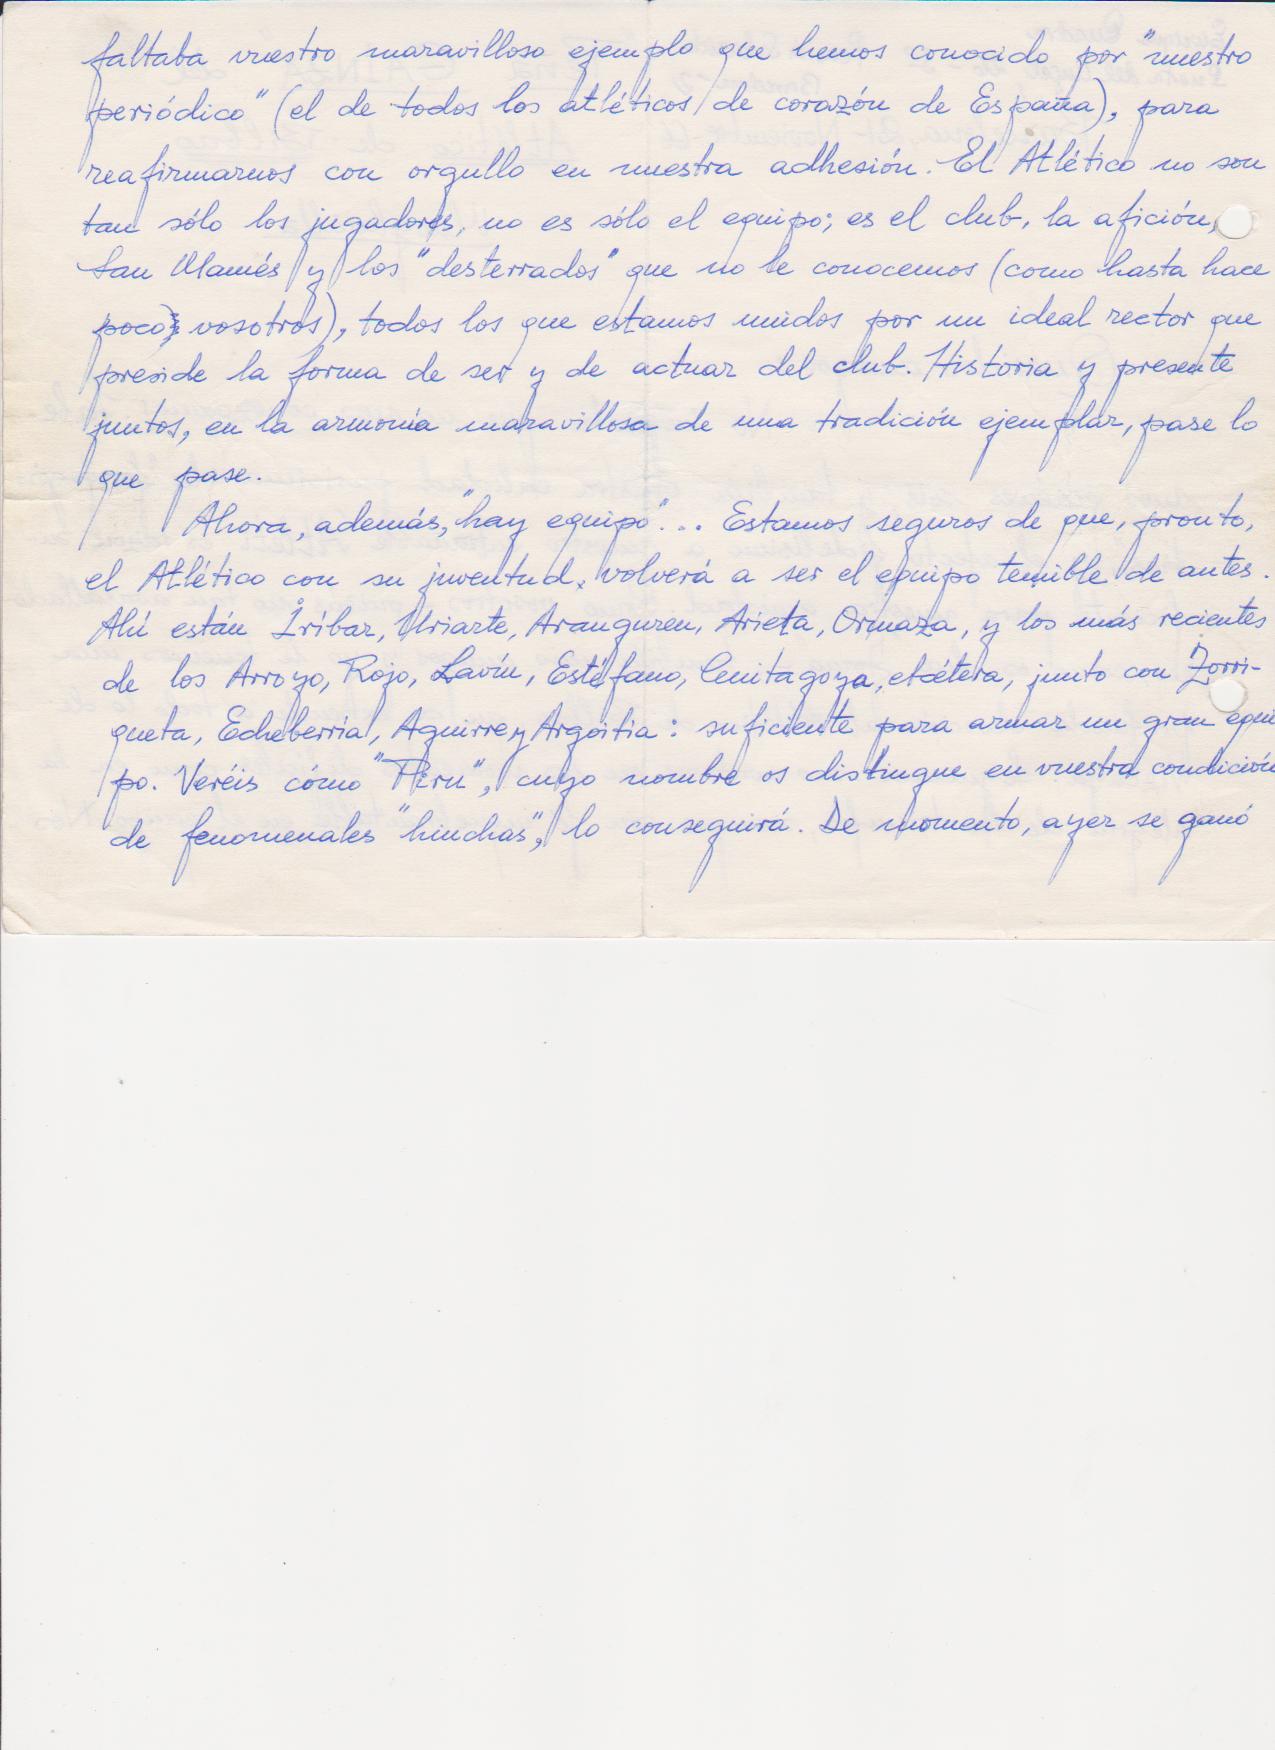 faltaba vuestro maravilloso ejemplo que hemos conocido por "nuestro
periódico" (el de todos los atléticos de corazón de España), para
reafirmarnos con orgullo en nuestra adhesión. El Atlético no son
tan sólo los jugadores, no es sólo el equipo; es el club, la afición,
San Mamés y los "desterrados" que no le conocemos (como hasta hace
poco vosotros), todos los que estamos unidos por un ideal rector que
preside la forma de ser y de actuar del club. Historia y presente
juntos, en la armonía maravillosa de una tradición ejemplar, pase lo
que pase.
Ahora, además, "hay equipo"... Estamos seguros de que, pronto,
el Atlético con su juventud, volverá a ser el equipo temible de antes.
Ahí están Iríbar, Uriarte, Aranguren, Arieta, Ormaza, y los más recientes
de los Arroyo, Rojo, Lavín, Estéfano, Cenitagoya, etcétera, junto con Zorri-
queta, Echeberría, Aguirre y Argoitia: suficiente para armar un gran equi
po. Veréis cómo "Piru", cuyo nombre os distingue en vuestra condición
de fenomenales "hinchas", lo conseguirá. De momento, ayer se ganó